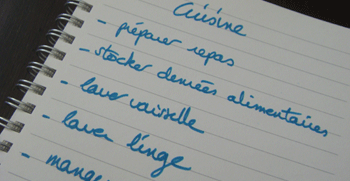 Cuisine
- préparer repas
- stocker denrées alimentaires
- laver vaisselle
- laver linge
- manger